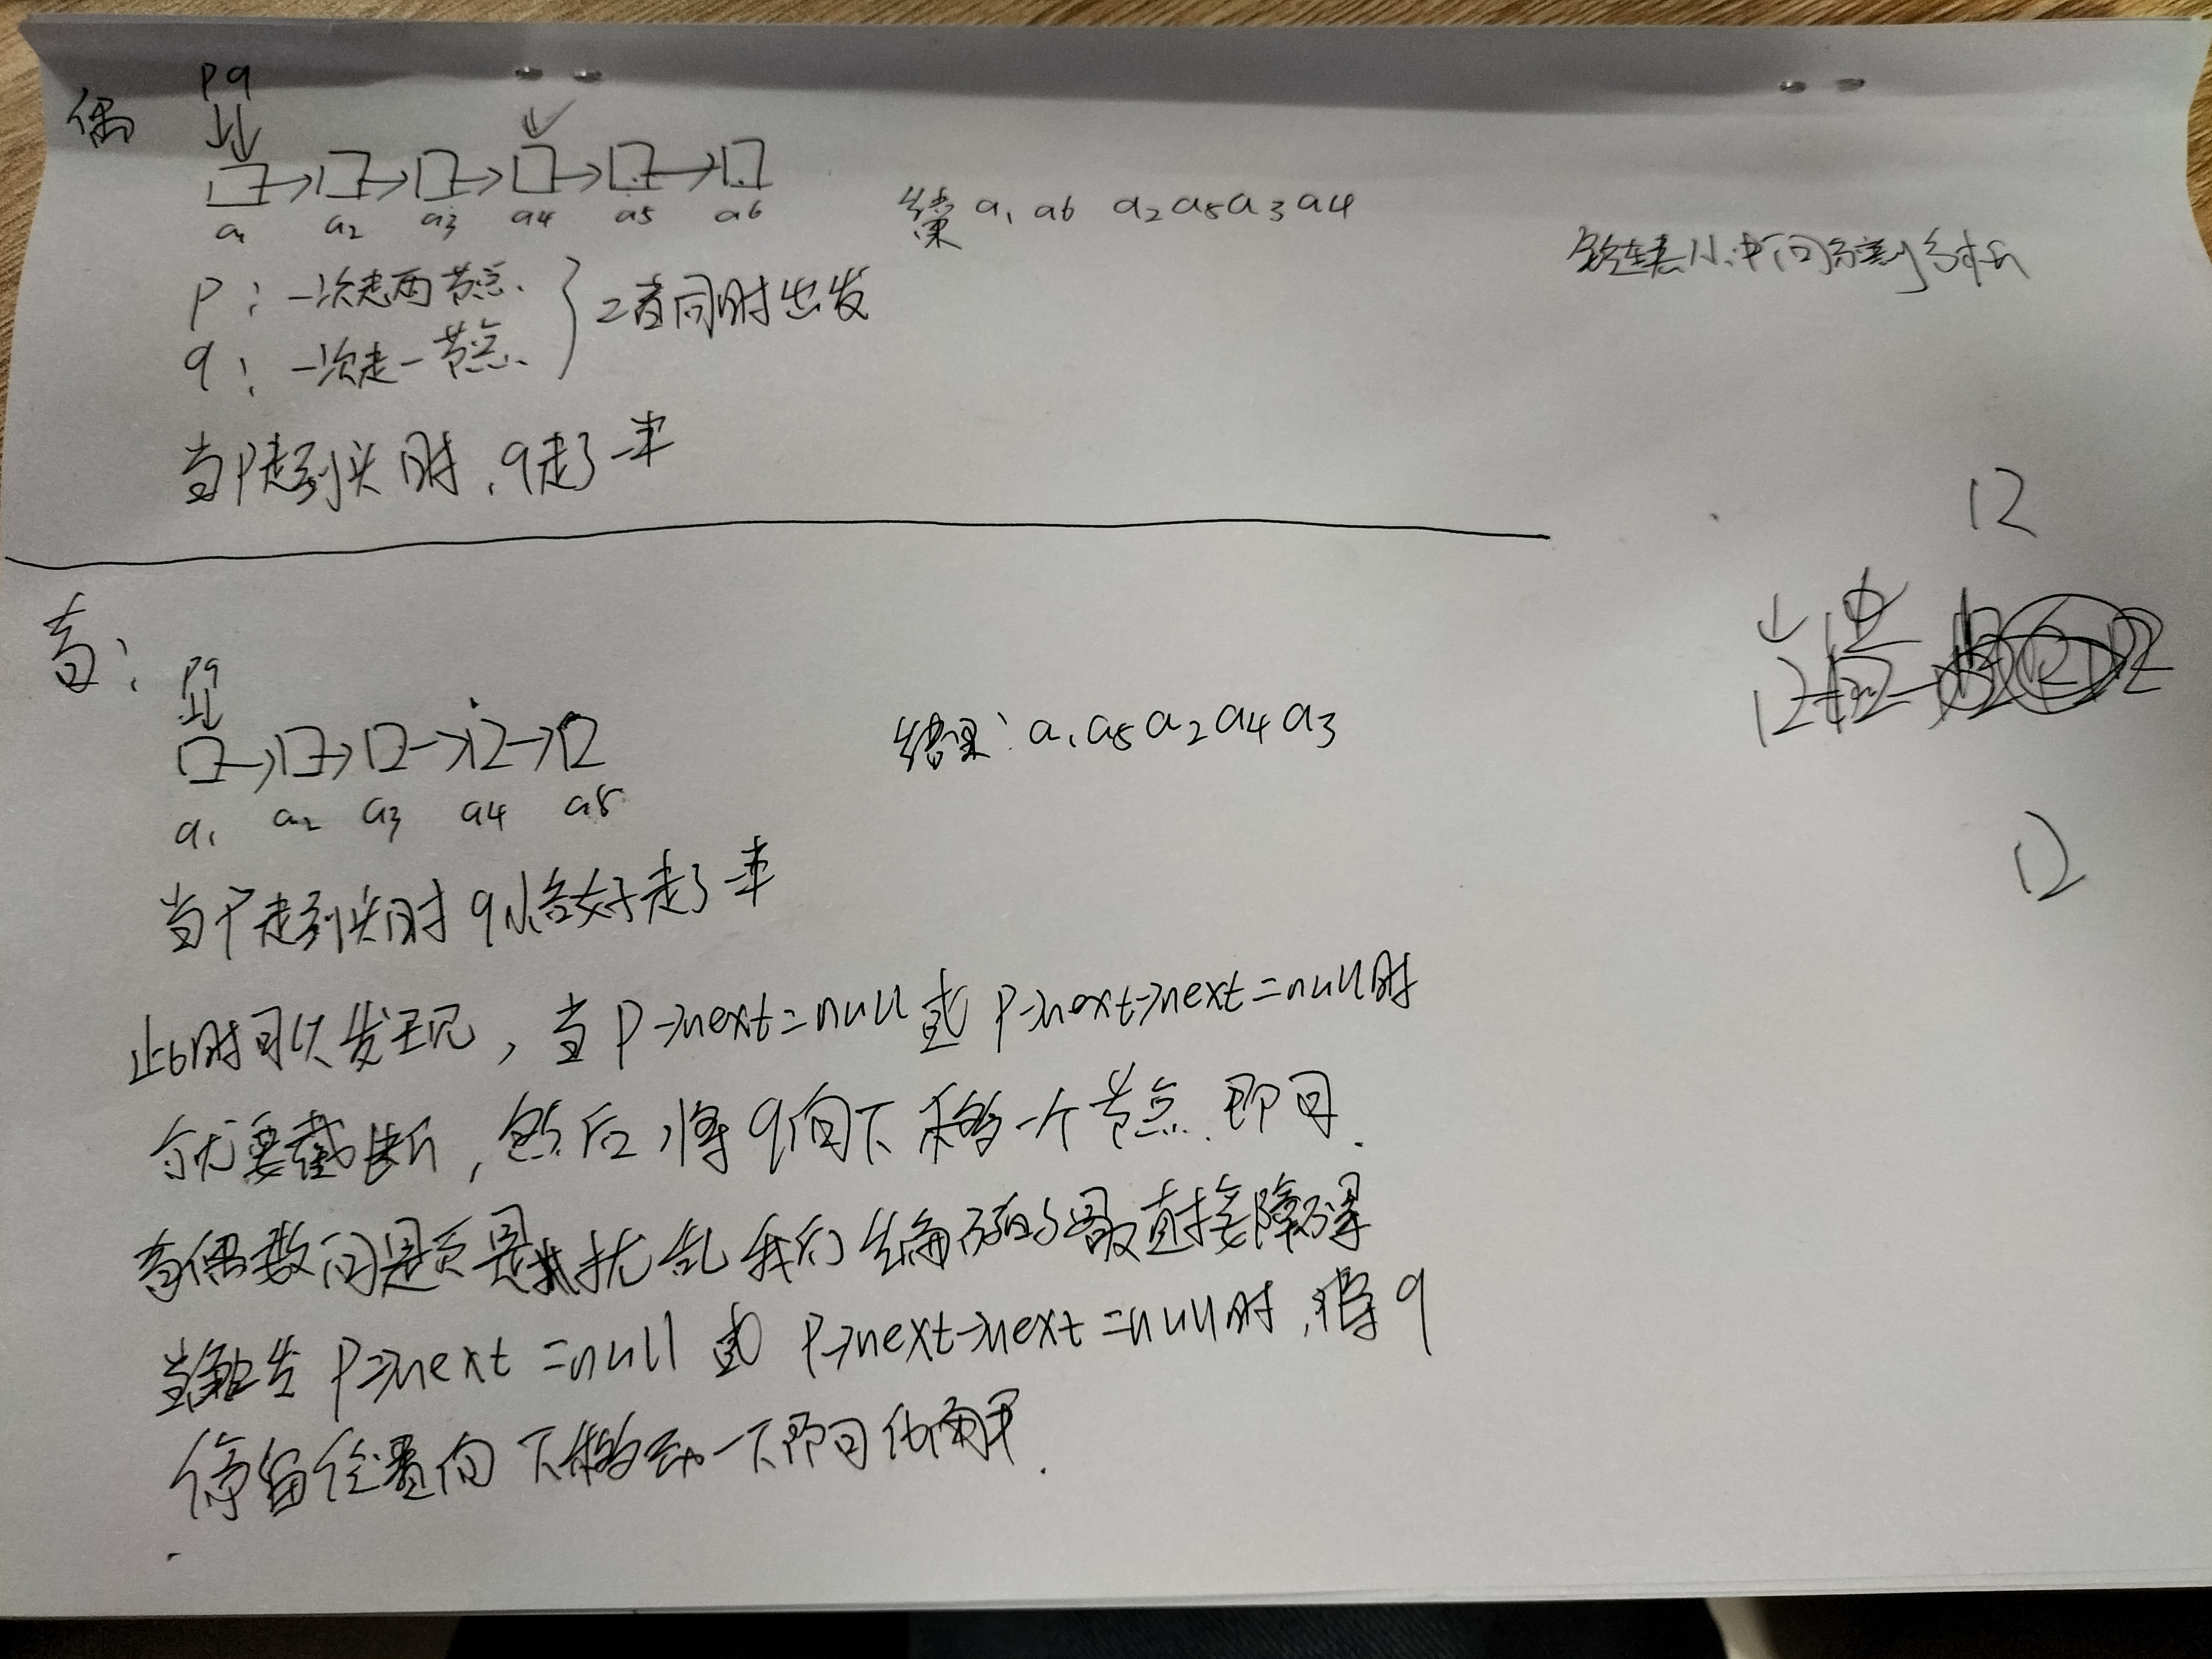 偶
p q
a1 a2 a3 a4 a5 a6
结果 a1 a6 a2 a5 a3 a4
p：一次走两节点.
q：一次走一节点.
二者同时出发
当p走到头时，q走了一半
奇：
p q
a1 a2 a3 a4 a5
结果：a1 a5 a2 a4 a3
当p走到头时 q恰好走了一半
此时可以发现，当 p->next=null 或 p->next->next=null时
就要截断，然后将q向下移一个节点.即可.
奇偶数问题是扰乱我们编码的最直接障碍
当触发 p->next=null 或 p->next->next=null时，将q
停留位置向下移动一下即可